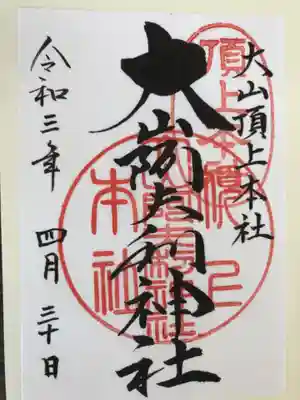 大山頂上本社
大山阿夫利神社
令和三年 四月 三十日
頂上本社
本社